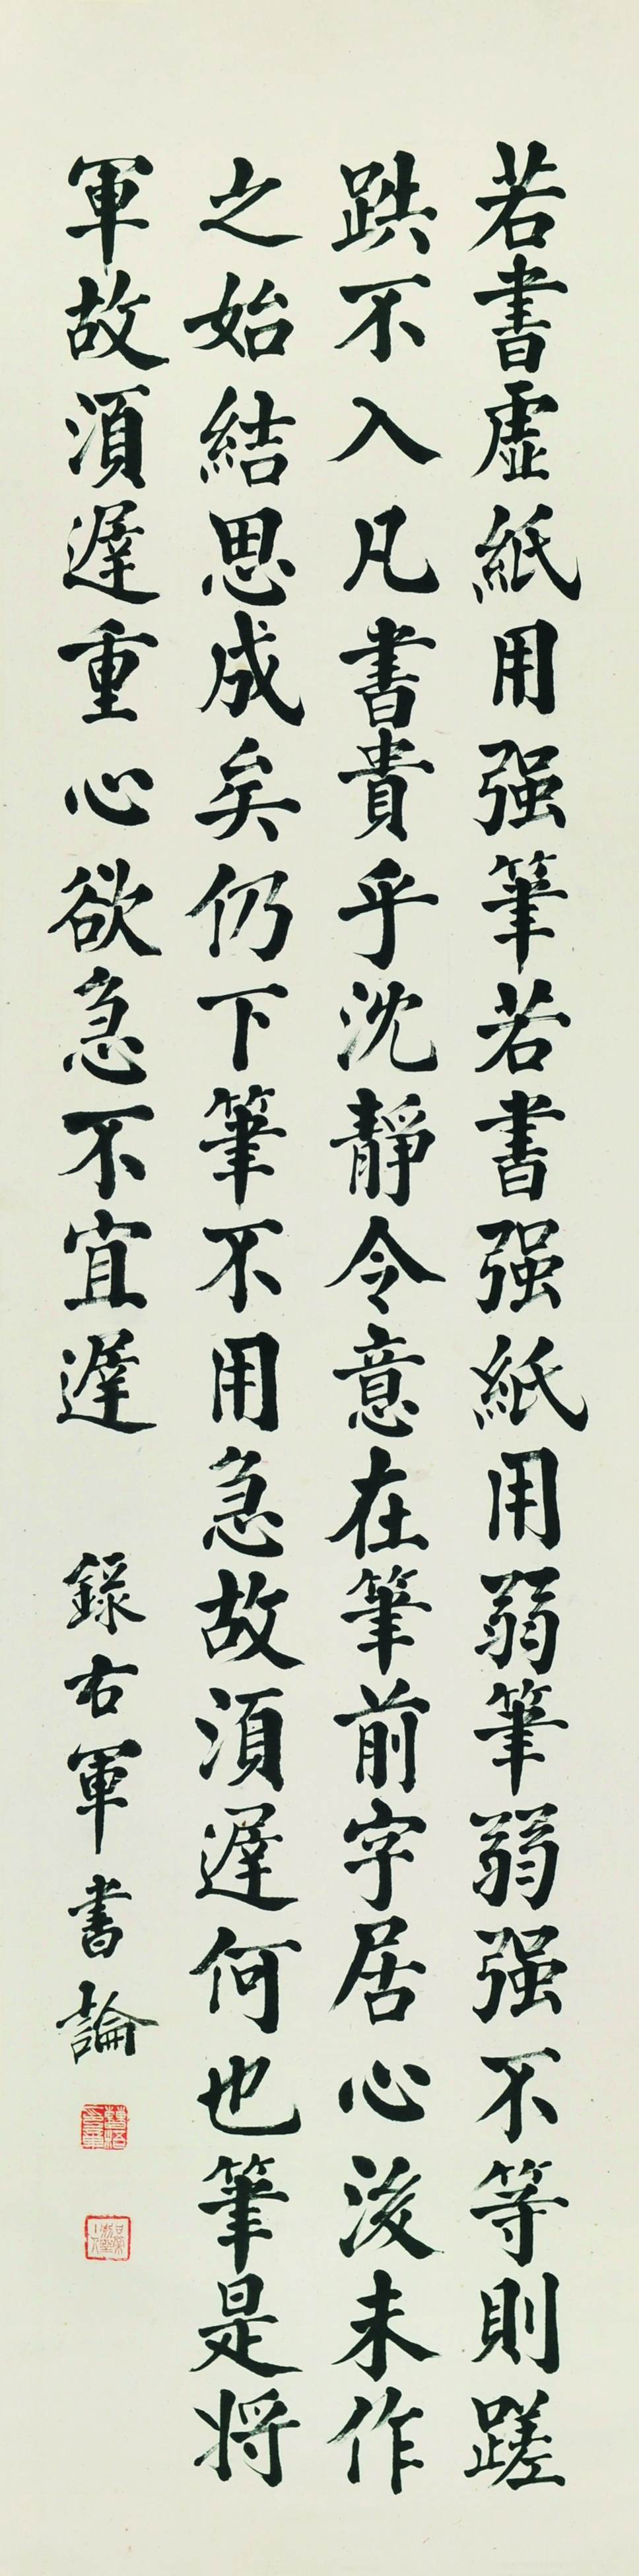 若書虛紙用强筆若書强紙用弱筆弱强不等則蹉
跌不入凡書貴乎沈靜令意在筆前字居心後未作
之始結思成矣仍下筆不用急故須遲何也筆是將
軍故須遲重心欲急不宜遲
錄右軍書論